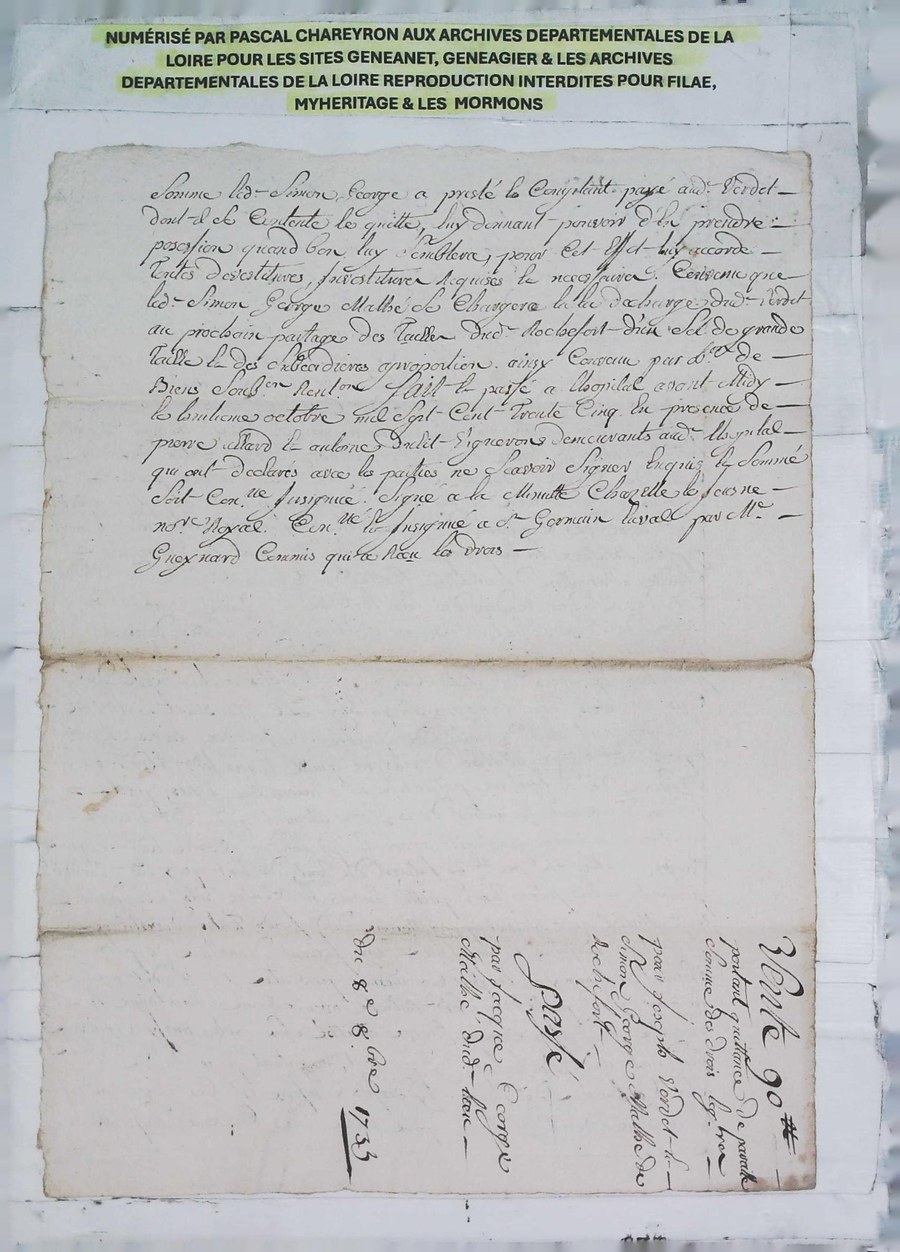 NUMÉRISÉ PAR PASCAL CHAREYRON AUX ARCHIVES DEPARTEMENTALES DE LA
LOIRE POUR LES SITES GENEANET, GENEAGIER & LES ARCHIVES
DEPARTEMENTALES DE LA LOIRE REPRODUCTION INTERDITES POUR FILAE,
MYHERITAGE & LES MORMONS
Somme led. Simon George a presté le Comptant payé aud. Verdet
dont il se Contente le quitte, luy donnant pouvoir d'en prendre
posession quand bon luy semblera, pour Cet effet luy accorde
Toutes devestitures, Investitures Requises & necessaires. Convenu que
led. Simon George Mathé se Chargera
au prochain partage des Tailles dud. Rochefort d'un sol de grande
Taille & des a proportion. ainsy Convenu par de
Biens Fait & passé a lhopital avant Midy
le huitieme octobre mil Sept Cent Trente Cinq. En presence de
pierre allard & antoine Vignerons demeurants aud. lhopital
qui ont declarés avec les parties ne Scavoir Signer Enquis & Sommé
Soit Con.lle Insignué. Signé a la Minutte Chazelle le Jeune
no.re Royal. Con.lé & Insignué a St. Germain laval par Me.
Gueynard Commis qui a Receu les drois
Vente 90 ₶
portant quittance de pareille
somme des droits
pour Joseph Verdet &
Simon George Mathé de
Rochefort
Passé
par Jacque George
Mathé dud. lieu
du 8e 8bre 1735